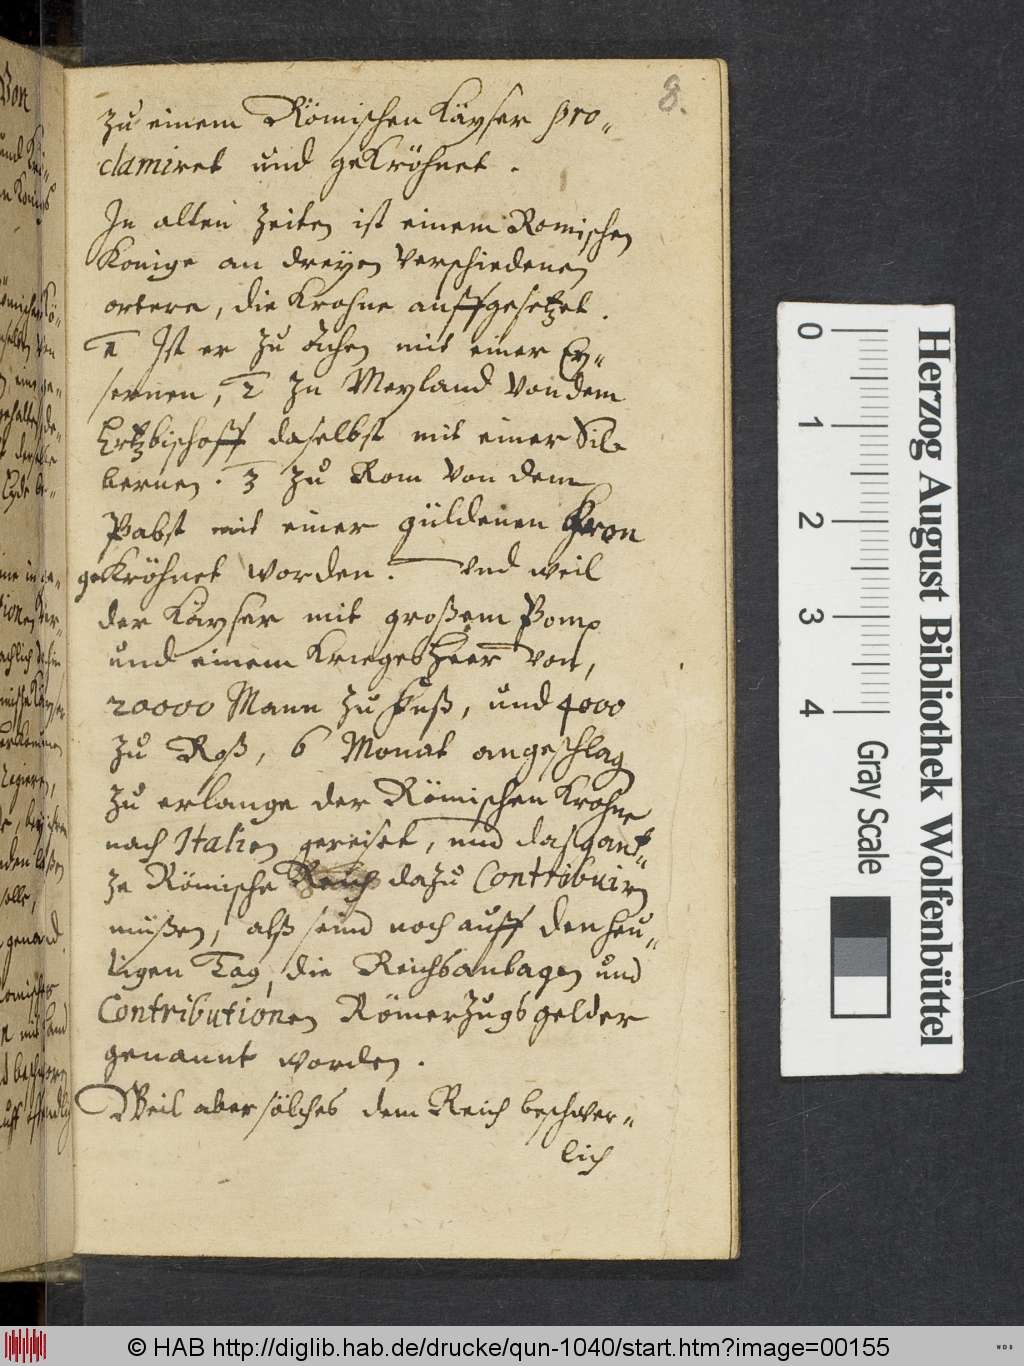 8.
zu einem Römischen Käyser pro-
clamiret und gekröhnet.
In alten Zeiten ist einem Romischen
Konige an dreyen verschiedenen
ortern, die Krohne auffgesetzet.
1 Ist er zu Achen mit einer Ey-
sernen, 2 Zu Meyland von dem
Ertzbischoff daselbst mit einer Sil-
bernen. 3 Zu Rom von dem
Pabst mit einer güldenen Kron
gekröhnet worden. Und weil
der Käyser mit großem Pomp
und einem KriegesHeer von,
20000 Mann zu Fuß, und 4000
zu Roß, 6 Monat angeschlag
zu erlange der Römischen Krohne
nach Italien gereiset, und das gant-
ze Römische Reich dazu Contribuirn
müßen, alß seind noch auff den heu-
tigen Tag, die Reichsanlagen und
Contributionen Römerzugsgelder
genannt worden.
Weil aber sölches dem Reich beschwer-
lich
Herzog August Bibliothek Wolfenbüttel
Gray Scale
0 1 2 3 4
© HAB http://diglib.hab.de/drucke/qun-1040/start.htm?image=00155